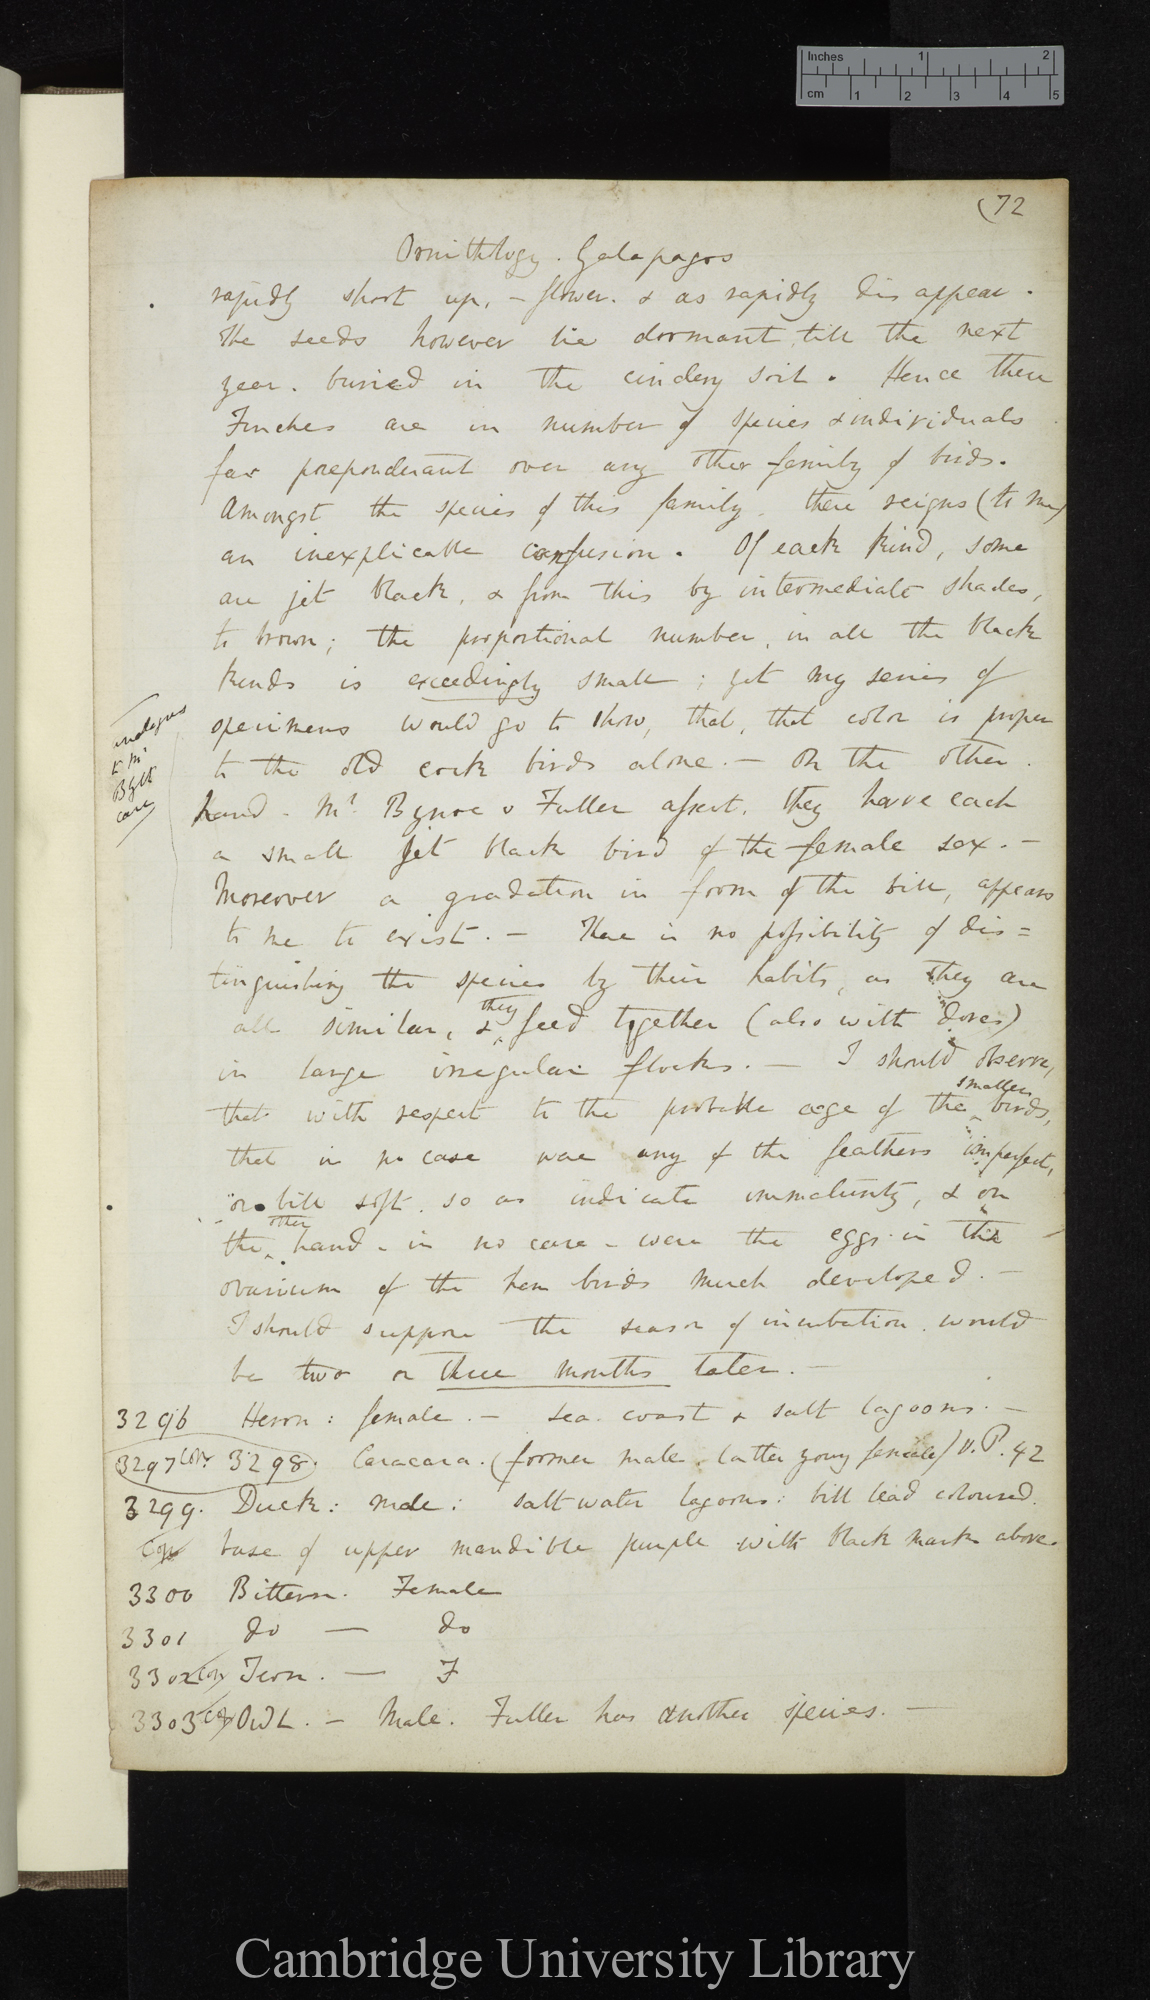 Inches 1 2
cm 1 2 3 4 5
(72
Ornithology. Galapagos
rapidly shoot up, - flower. & as rapidly disappear.
The seeds however lie dormant till the next
year. buried in the cindery soil. Hence these
Finches are in number of species & individuals
far preponderant over any other family of birds.
Amongst the species of this family, there reigns (to me)
an inexplicable confusion. Of each kind, some
are jet black, & from this by intermediate shades,
to brown; the proportional number, in all the black
kinds is exceedingly small; yet my series of
specimens would go to show, that, that color is proper
to the old cock birds alone. — On the other
hand. Mr Bynoe & Fuller assert, they have each
a small jet black bird of the female sex. —
analogous
to Mr
case
Moreover a gradation in form of the bill, appears
to me to exist. — There is no possibility of dis=
tinguishing the species by their habits, as they are
all similar, & they feed together (also with doves)
in large irregular flocks. — I should observe,
that with respect to the probable age of the smaller birds,
that in no case were any of the feathers imperfect,
or bill soft. so as indicate immaturity, & on
the other hand - in no case - were the eggs in the
ovarium of the hen birds much developed. —
I should suppose the season of incubation would
be two or three months later. —
3296 Heron: female. — Sea coast & salt lagoons. —
3297 3298. Caracara. (former male, latter young female) V. P. 42
3299. Duck: male: salt water lagoons: bill lead coloured.
base of upper mandible purple with black mark above.
3300 Bittern. Female
3301 do — do
3302 Tern. — F
3303 Owl. — Male. Fuller has another species. —
Cambridge University Library